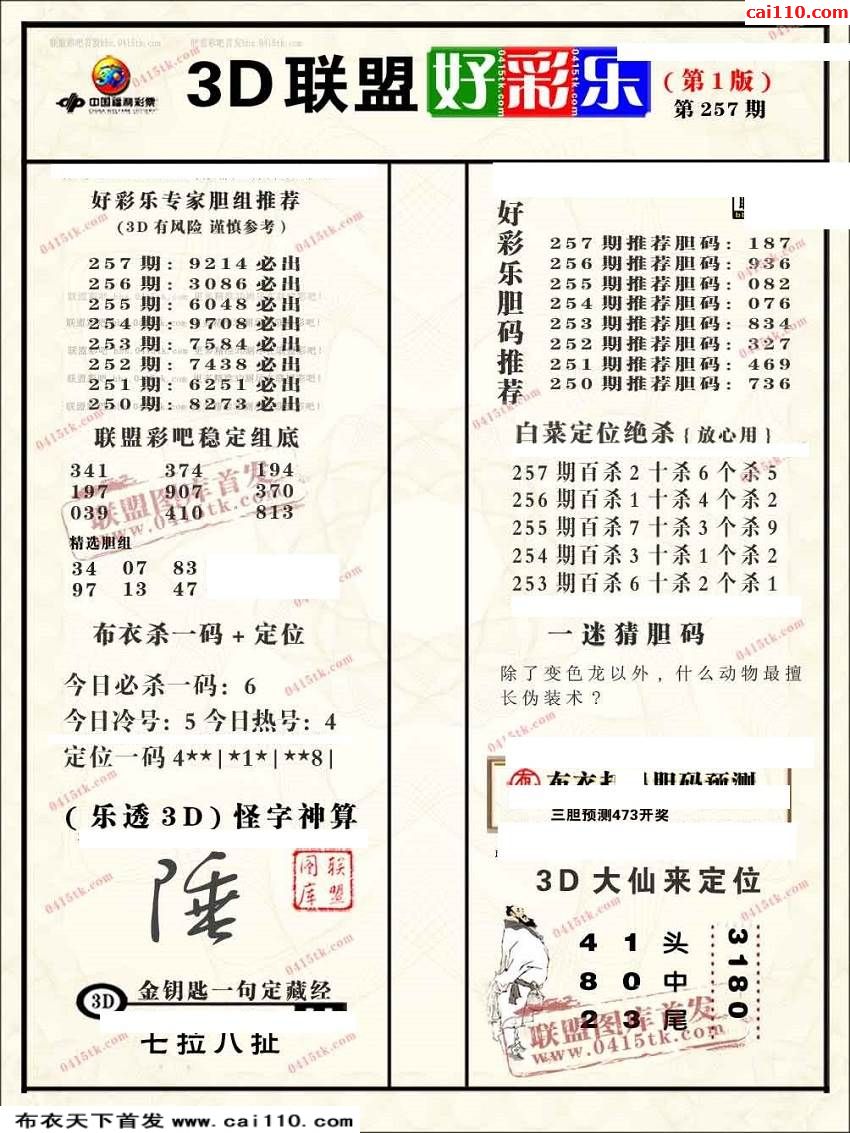 cai110.com
联盟彩吧首发bbs.0415tk.com
中国福利彩票
CHINA WELFARE LOTTERY
3D联盟好彩乐
0415tk.com
(第1版)
第257期
好彩乐专家胆组推荐
(3D有风险 谨慎参考)
257期:9214必出
256期:3086必出
255期:6048必出
254期:9708必出
253期:7584必出
252期:7438必出
251期:6251必出
250期:8273必出
联盟彩吧稳定组底
341 374 194
197 907 370
039 410 813
联盟图库首发
www.0415tk.com
精选胆组
34 07 83
97 13 47
布衣杀一码+定位
今日必杀一码:6
今日冷号:5今日热号:4
定位一码4**|*1*|**8|
(乐透3D)怪字神算
陲
联盟图库
3D 金钥匙一句定藏经
七拉八扯
好彩乐胆码推荐
257期推荐胆码:187
256期推荐胆码:936
255期推荐胆码:082
254期推荐胆码:076
253期推荐胆码:834
252期推荐胆码:327
251期推荐胆码:469
250期推荐胆码:736
白菜定位绝杀{放心用}
257期百杀2十杀6个杀5
256期百杀1十杀4个杀2
255期百杀7十杀3个杀9
254期百杀3十杀1个杀2
253期百杀6十杀2个杀1
一迷猜胆码
除了变色龙以外,什么动物最擅
长伪装术?
三胆预测473开奖
3D大仙来定位
41头
80中
23尾
3180
联盟图库首发
www.0415tk.com
布衣天下首发 www.cai110.com